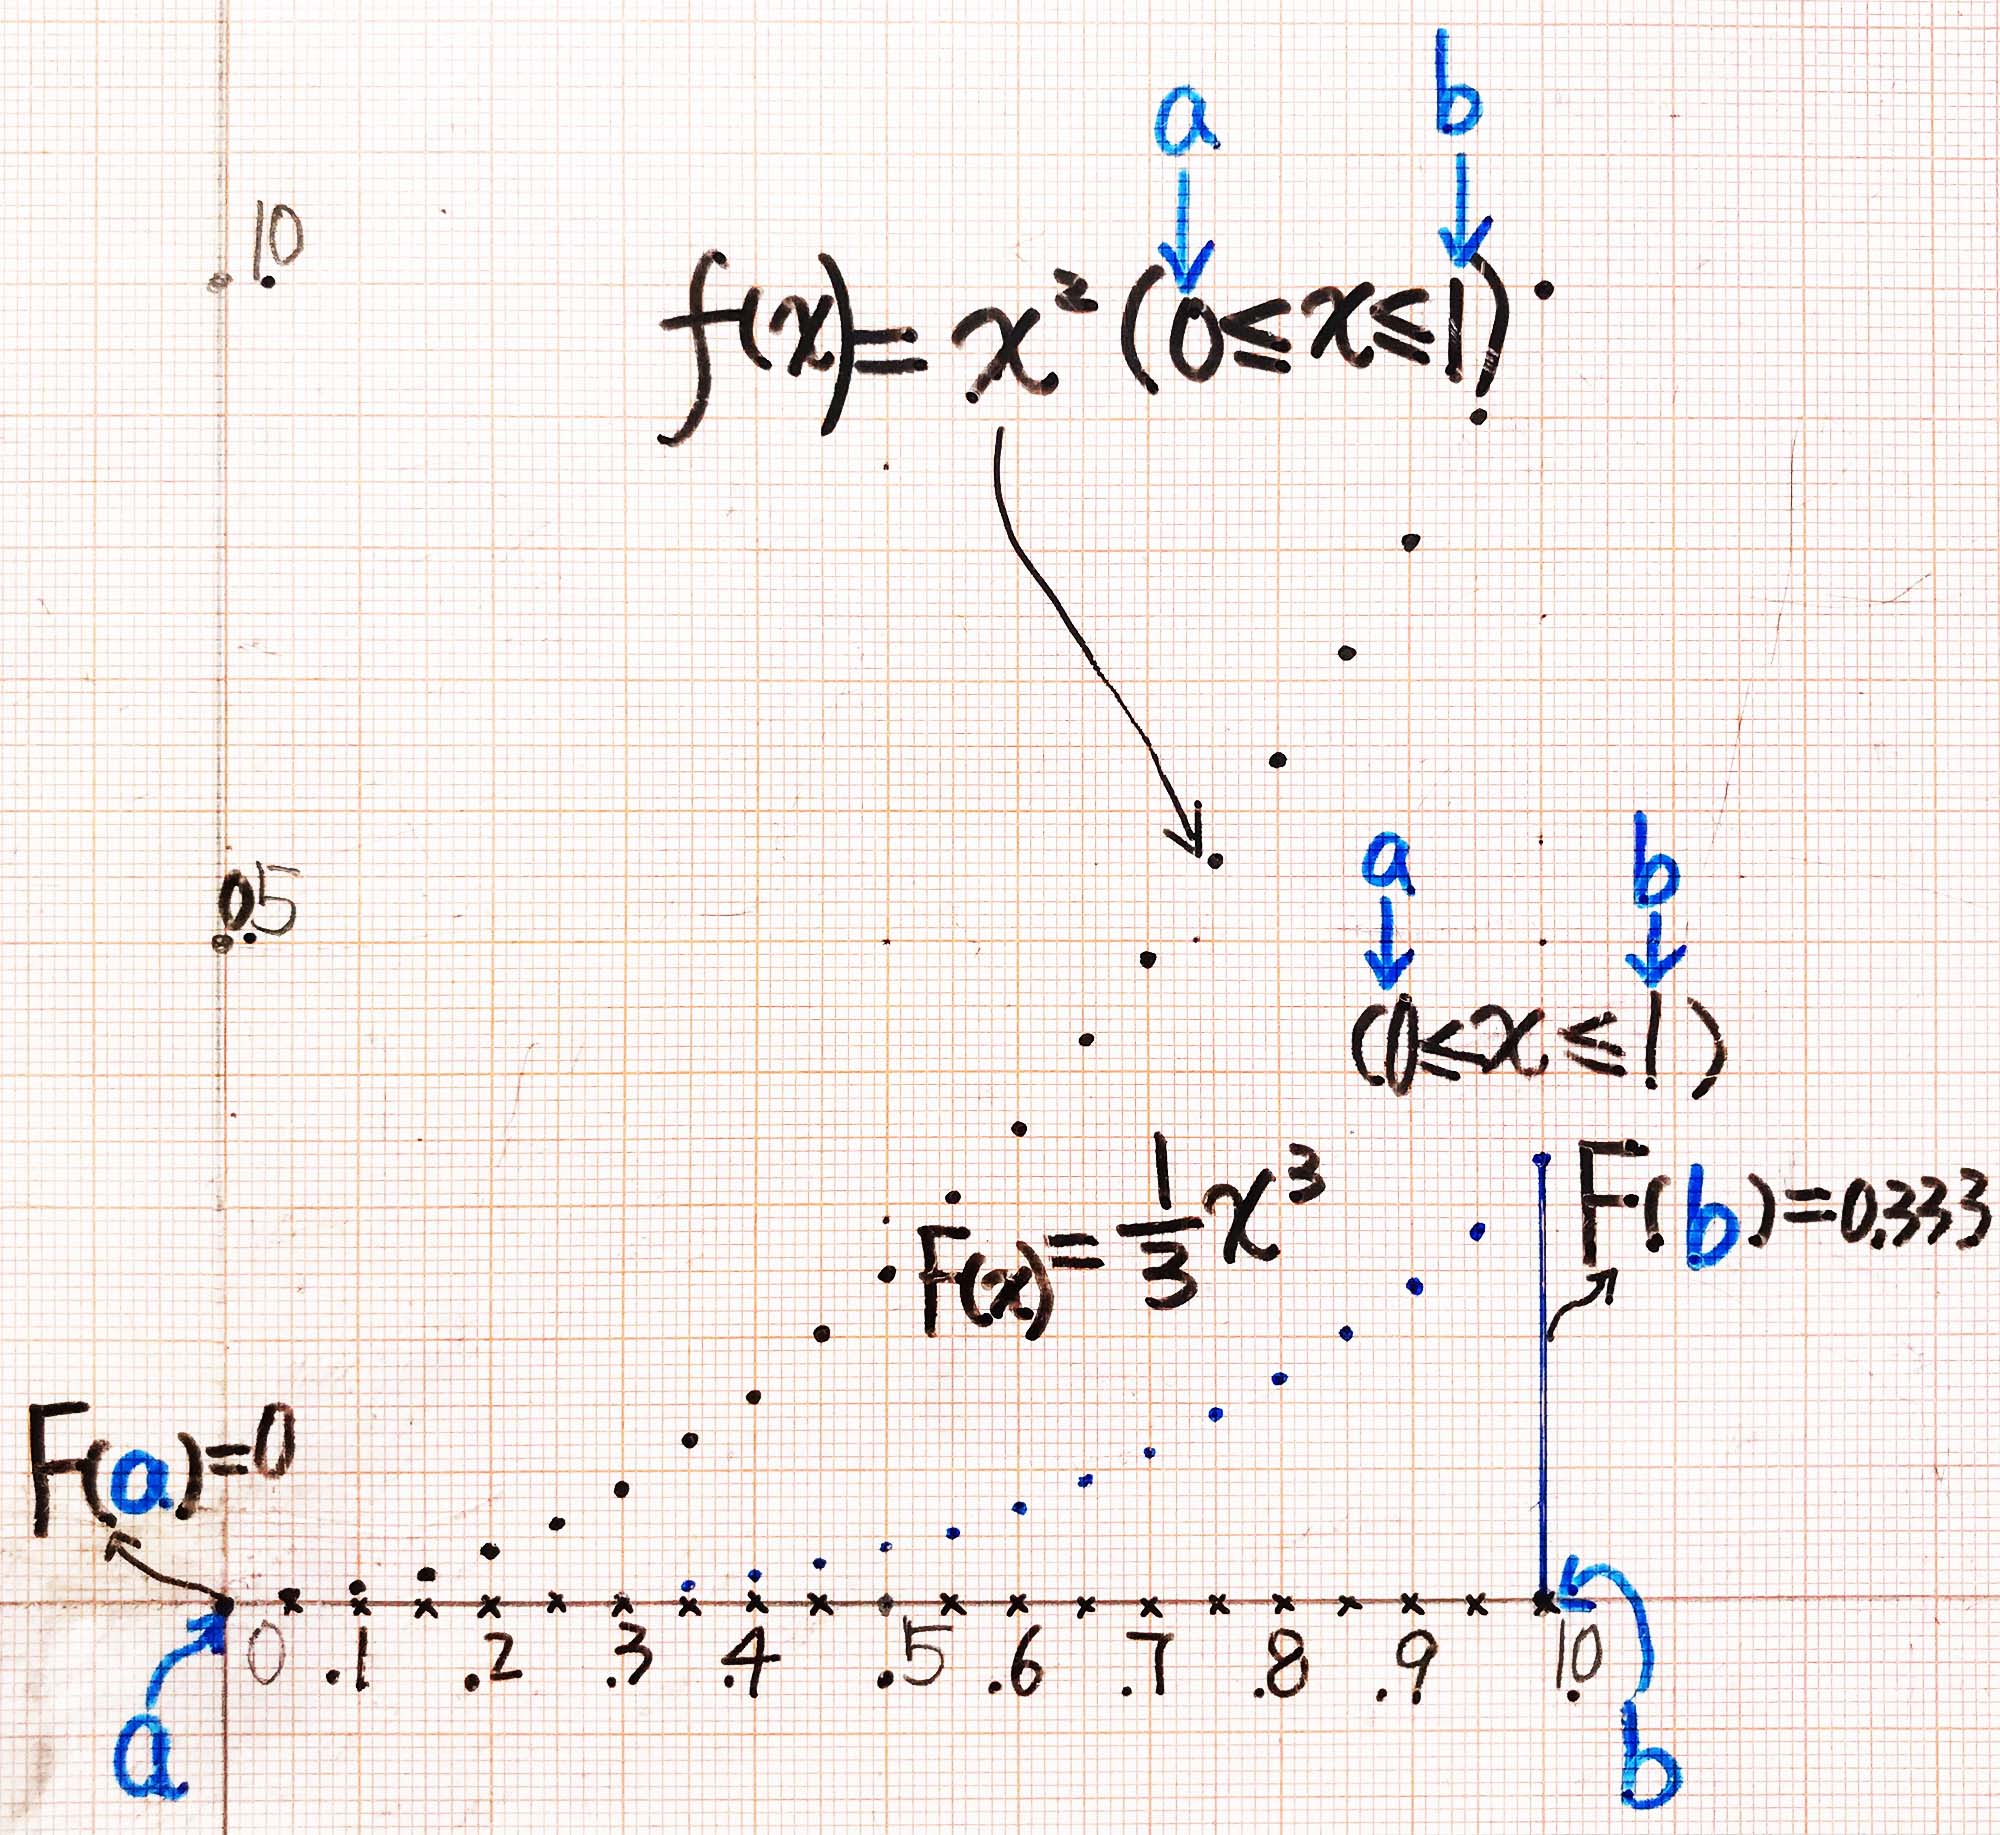 a b
1.0
f(x)= x² (0≤x≤1)
0.5
a b
(0≤x≤1)
F(x)=1/3 x³
F(b)=0.333
F(a)=0
0 .1 .2 .3 .4 .5 .6 .7 .8 .9 1.0
a b